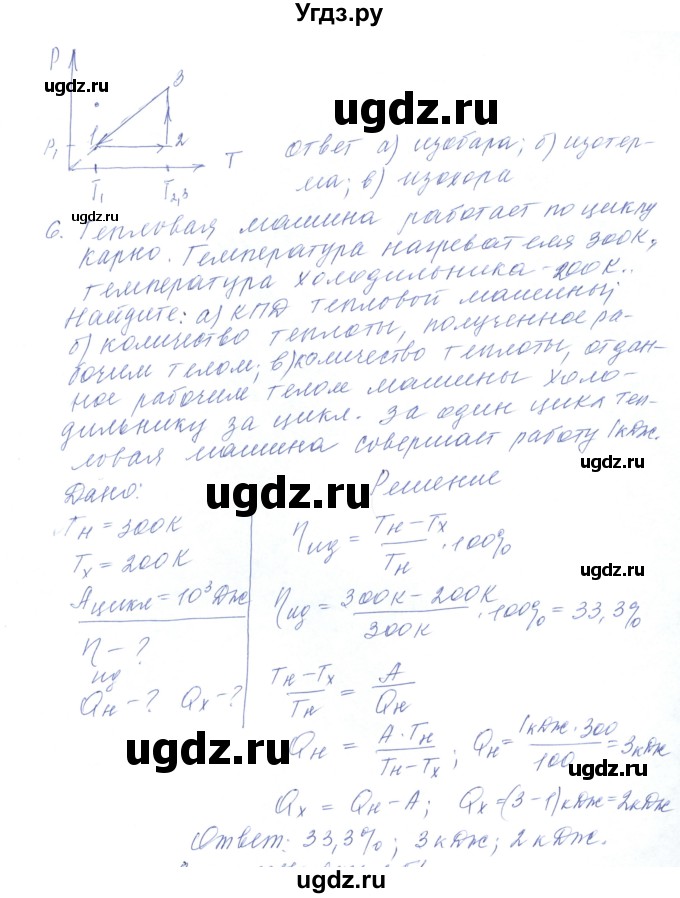 Угдз.ру
P
ugdz.ru
3
ugdz.ru
P₁ 1 2
T
T₁ T₂,₃
ugdz.ru
Ответ а) изобара; б) изотер-
ма; в) изохора
6. Тепловая машина работает по циклу
Карно. Температура нагревателя 300К,
температура холодильника - 200К.
Найдите: а) КПД тепловой машины;
б) количество теплоты, полученное ра-
бочим телом; в) количество теплоты, отдан-
ное рабочим телом машины холо-
дильнику за цикл. За один цикл теп-
ловая машина совершает работу 1 кДж.
ugdz.ru
Дано: Решение
ugdz.ru
Tн = 300К
Tх = 200К
Aцикл = 10³ Дж
ηид - ?
Qн - ? Qх - ?
ηид = (Tн - Tх)/Tн · 100%
ugdz.ru
ηид = (300К - 200К)/300К · 100% = 33,3%
(Tн - Tх)/Tн = A/Qн
ugdz.ru
Qн = A · Tн/(Tн - Tх); Qн = 1кДж · 300/100 = 3кДж
ugdz.ru
Qх = Qн - A; Qх = (3 - 1) кДж = 2 кДж
Ответ: 33,3%; 3 кДж; 2 кДж.
ugdz.ru